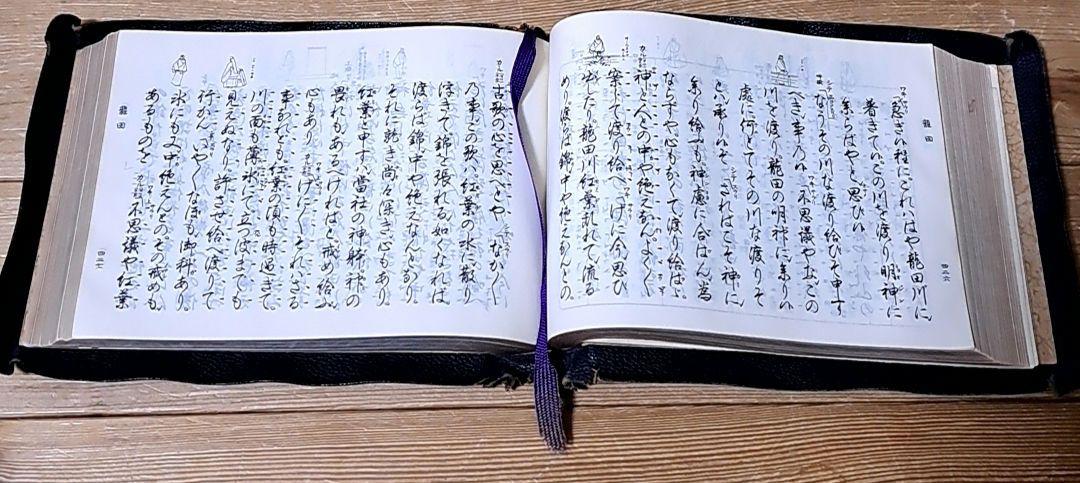 急ぎ候程にこれははや龍田川に
着きて候この川を渡り明神に
参らばやと思ひ候
なうその川な渡り給ひそ申す
べき事の候 不思議やなこの
川を渡り龍田の明神に参り候
處に何とてその川な渡りそ
とは承り候ぞ さればこそ神に
参り給ふも神慮に合はん為
ならずや心もなくて渡り給はゞ
神と人との中や絶えなんよくよく
案じて渡り給へ げに今思ひ
出したり龍田川紅葉乱れて流る
めり渡らば錦中や絶えなんとの
龍田
四二六
古歌の心を思へとや なかなか
乃事この歌は紅葉の水に散り
浮きて錦を張れる如くなれば
渡らば錦中や絶えなんとなり
それに就き尚々深き心もあり
紅葉と申すは當社の神躰の
畏れもあるべければと戒め給ふ
心もあり げにげにそれはさる
事なれども紅葉の頃も時過ぎて
川の面も薄氷にて立つ波までも
見えぬなり許させ給へ渡りて
行かん いやいやなほも御科あり
氷にも又中絶えんとのその戒めも
あるものを 不思議や紅葉
龍田
四二七